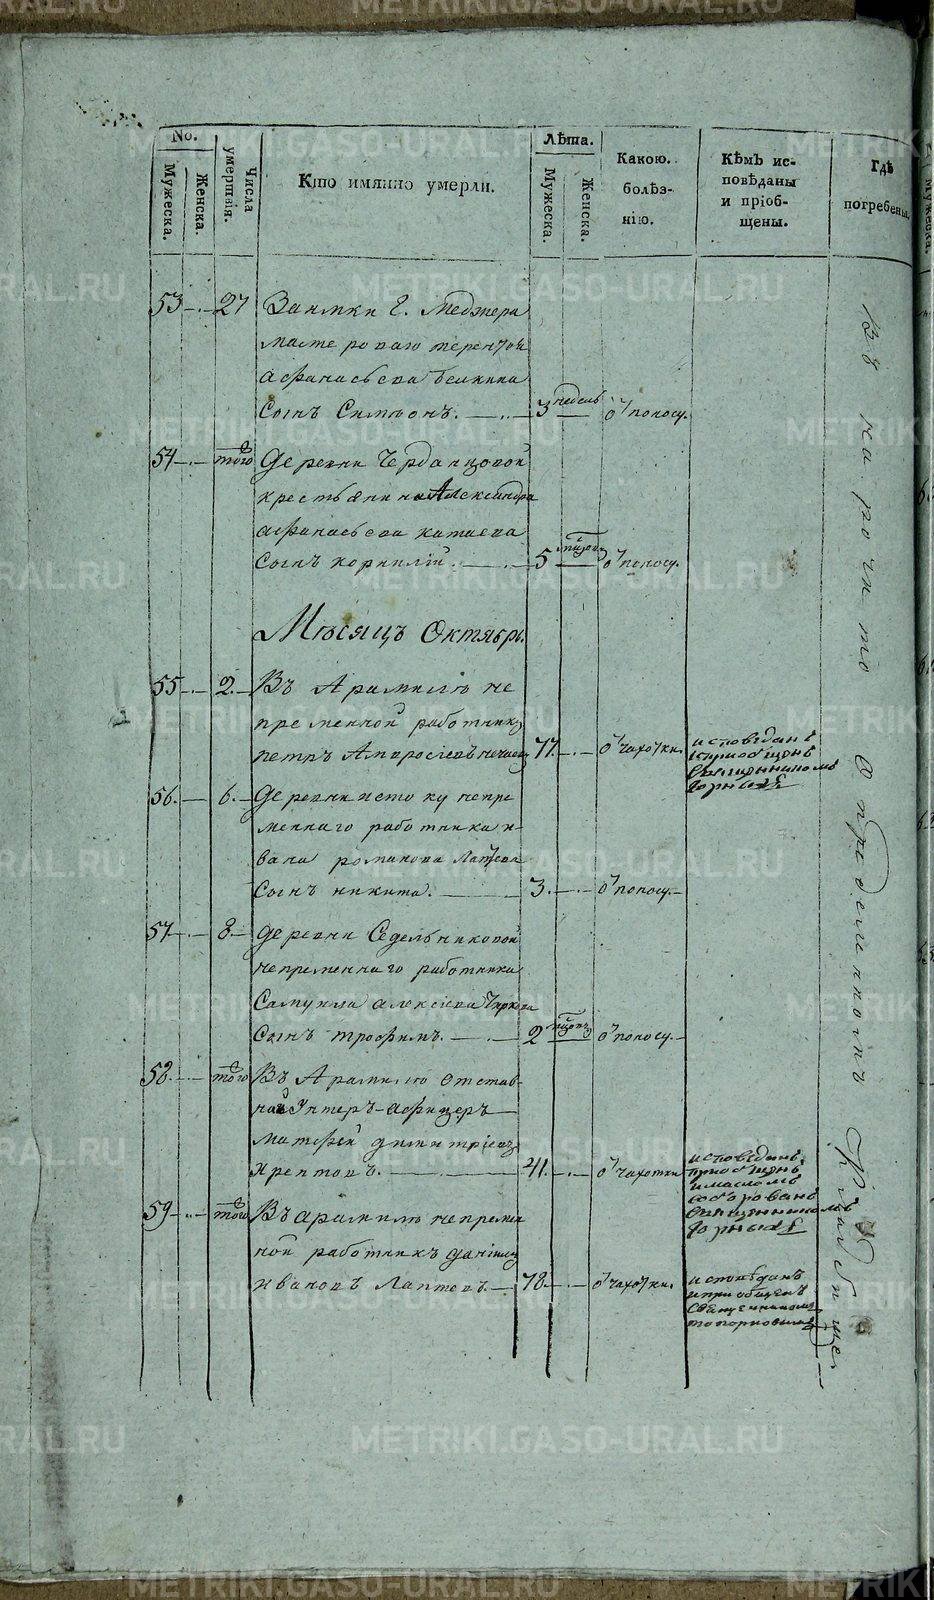 No.
Мужеска.
Женска.
Числа умершвія.
Кто имянно умерли.
Лѣта.
Мужеска.
Женска.
Какою.
болѣз-
нію.
Кѣмъ ис-
повѣданы
и пріоб-
щены.
Гдѣ
погребены.
53 27 Заимки Г. Меджера
мастероваго терентія
афанасьева белкина
Сынъ Симіонъ. 3 недель ѿ поносу.
54 того деревни Чердaнцовой
крестьянина Александра
афанасьева катаева
Сынъ корнилій. 5 ѿ поносу.
Мѣсяцъ Октябрь.
55 2. Въ Арамилю не
пременной работникъ
петръ Амвросіевъ 77. ѿ чахотки.
исповѣданъ
и приобщенъ
священникомъ
56. 6. деревни истоку непре
меннаго работника и
вана романова Лаптева
Сынъ никита. 3. ѿ поносу.
57 8 деревни Седельниковой
непременнаго работника
Самуила алексіева
Сынъ трофимъ. 2 ѿ поносу.
58. того Въ Арамилю отстав
ной Унтеръ-афицеръ
матфей димитріевъ
41. ѿ чахотки
исповѣданъ
приобщенъ
и масломъ
соборованъ
священникомъ
59 того Въ арамилю непремен
ной работникъ даніилъ
ивановъ Лаптевъ. 78. ѿ чахотки.
исповѣданъ
и приобщенъ
священникомъ
топорковымъ
На нарочито Определенномъ Кладбище
METRIKI.GASO-URAL.RU